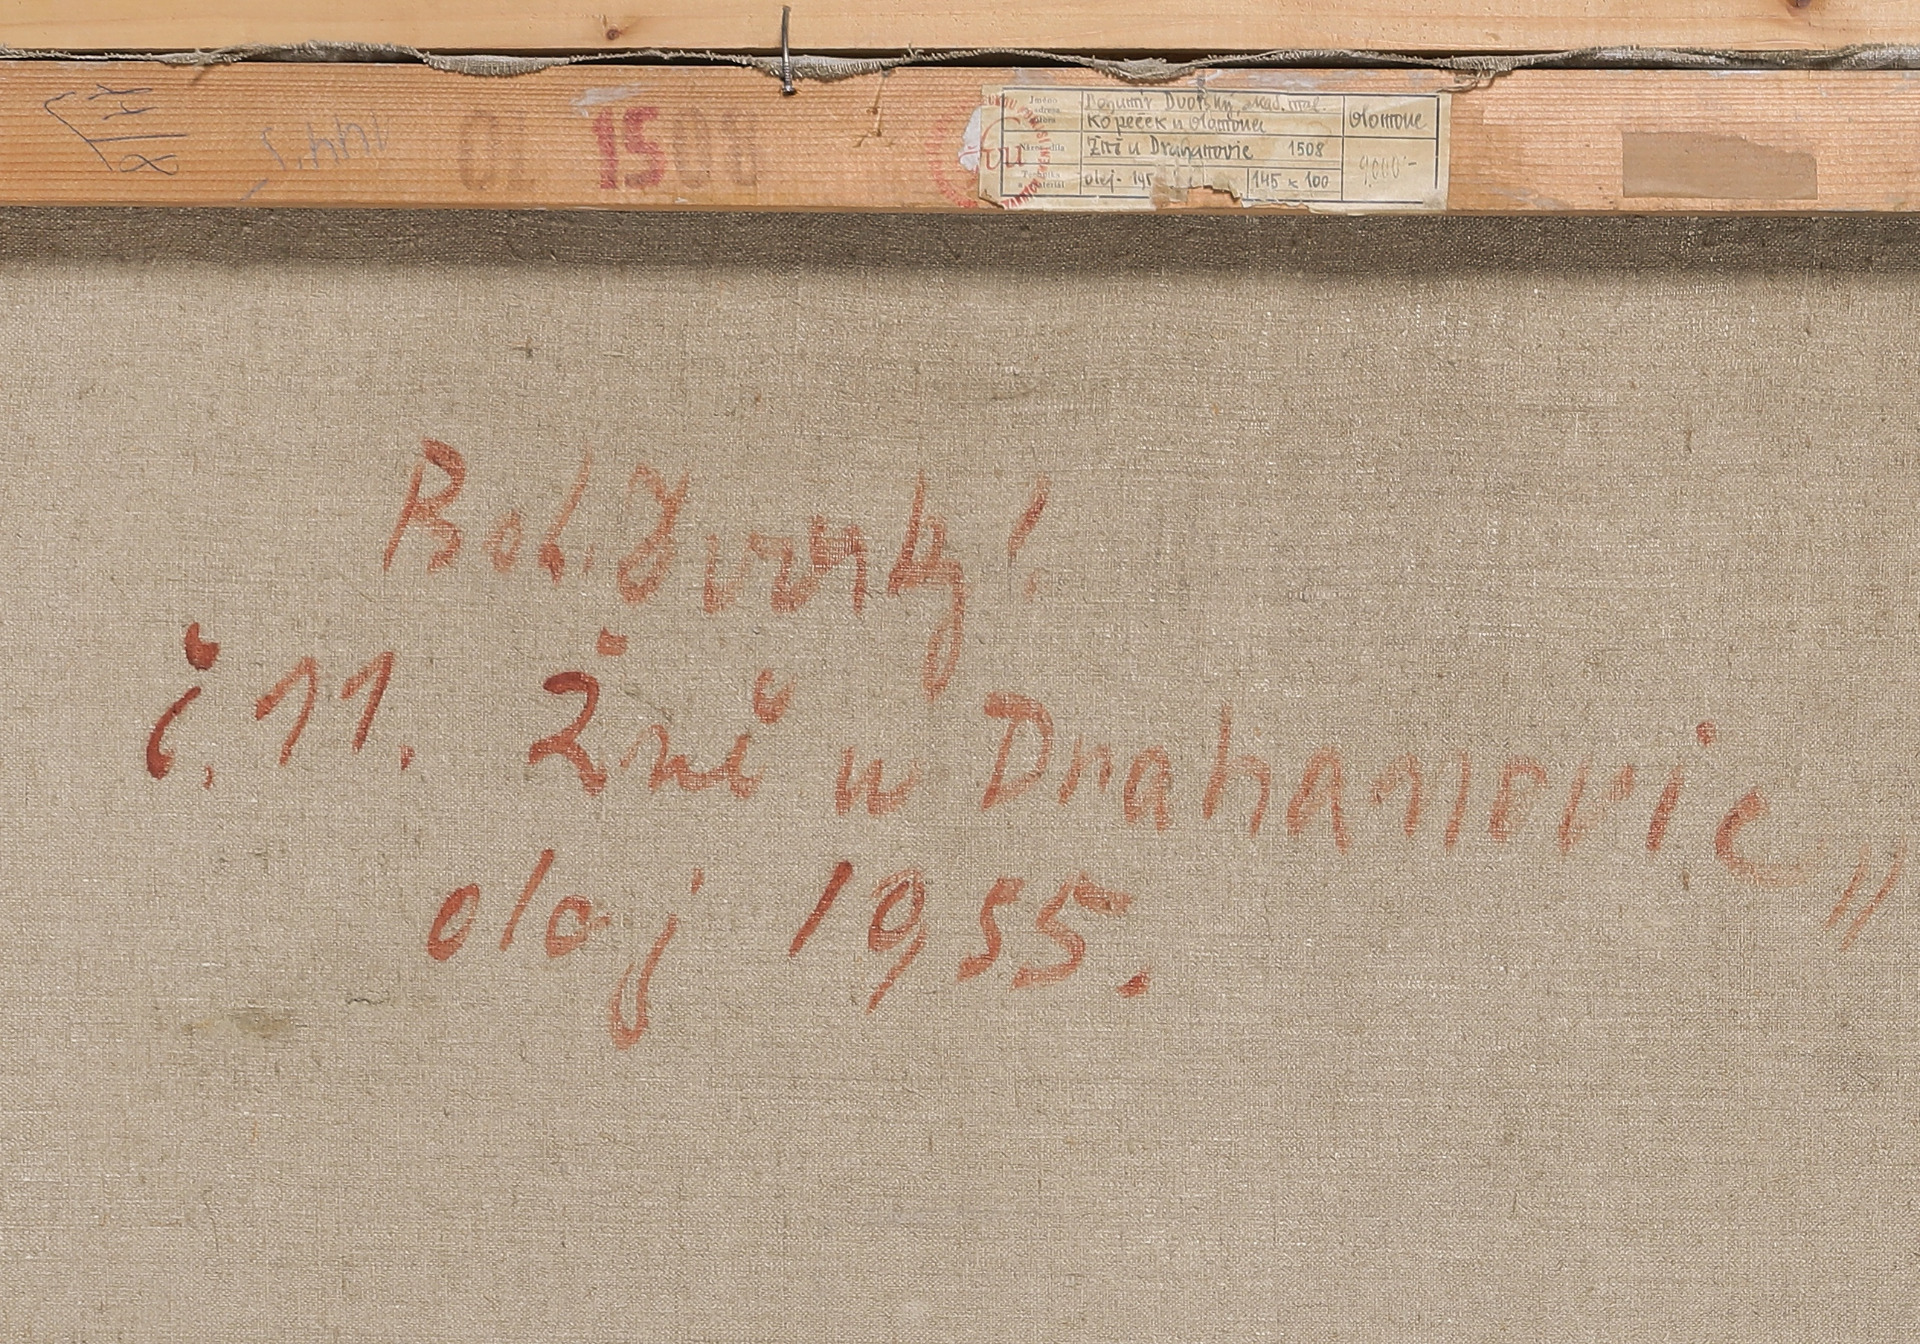 OL 1508
Jméno
adresa
Bohumír Dvorský, akad. mal.
Kopeček u Olomouce
Olomouc
Název díla
Žně u Drahanovic 1508
9000.-
Technika
a materiál
olej - 195
145 x 100
Boh. Dvorský!
č. 11. Žně u Drahanovic „
olej 1955.